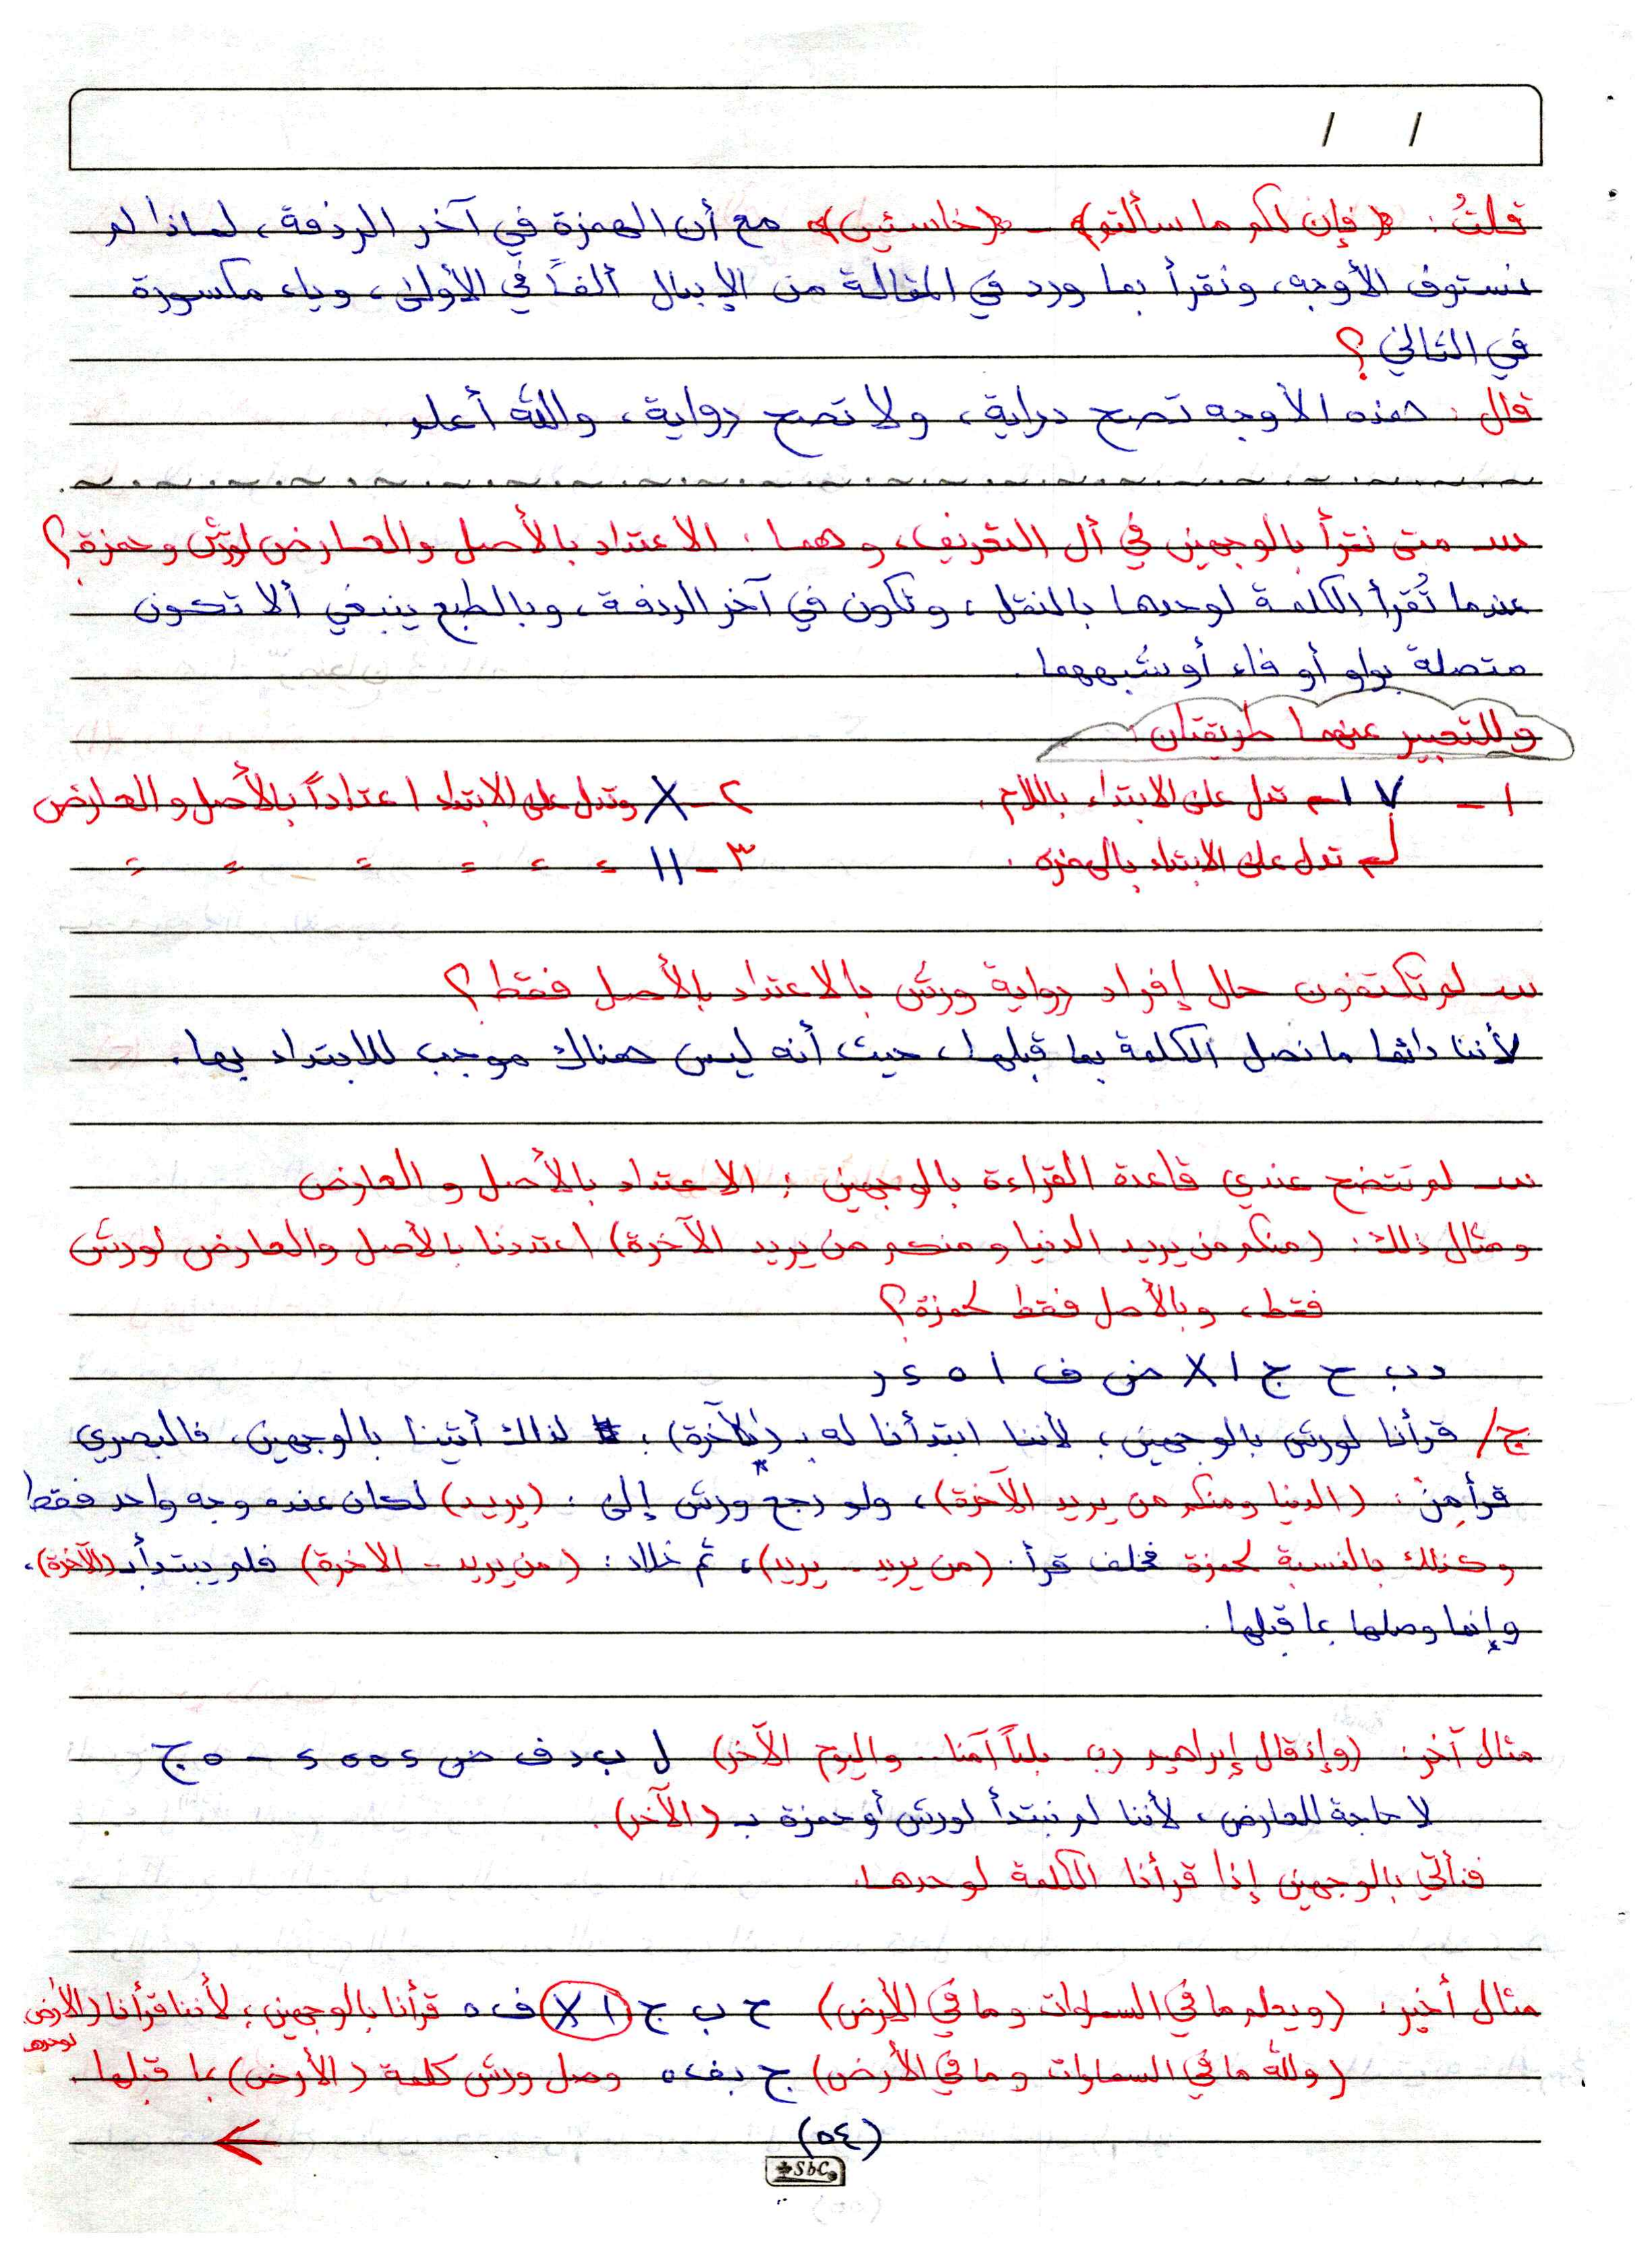 / /
قلتُ : ﴿ فإن لكم ما سألتم ﴾ - ﴿ خاسئين ﴾ مع أن الهمزة في آخر الردفة ، لماذا لم
نستوف الأوجه ، ونقرأ بما ورد في المقالة من الإبدال ألفاً في الأولى ، وياء مكسورة
في الثاني ؟
قال : هذه الأوجه تصح دراية ، ولا تصح رواية ، والله أعلم
س متى نقرأ بالوجهين في أل التعريف ، وهما : الاعتداد بالأصل والعارض لورش وحمزة ؟
عندما تُقرأ الكلمة لوحدها بالنقل ، وتكون في آخر الردفة ، وبالطبع ينبغي ألا تكون
متصلة بواو أو فاء أو شبههما .
وللتعبير عنهما طريقتان :
١ - ٧ ا تدل على الابتداء باللام . ٢ - X وتدل على الابتداء اعتداداً بالأصل والعارض
تدل على الابتداء بالهمزة . ٣ - ١١ = = = = = =
س لم تكتفون حال إفراد رواية ورش بالاعتداد بالأصل فقط ؟
لأننا دائما ما نصل الكلمة بما قبلها ، حيث أنه ليس هناك موجب للابتداء بها .
س لم تتضح عندي قاعدة القراءة بالوجهين : الاعتداد بالأصل والعارض
ومثال ذلك : (منكم من يريد الدنيا ومنكم من يريد الآخرة) اعتددنا بالأصل والعارض لورش
فقط ، وبالأصل فقط لحمزة ؟
د ب ح ج ا X ض ف ا ٥ ٤ ر
ج/ قرأنا لورش بالوجهين ؛ لأننا ابتدأنا له بـ (الآخرة) ؛ لذلك أتينا بالوجهين ، فالبصري
قرأ مِن : (الدنيا ومنكم من يريد الآخرة) ، ولو رجع ورش إلى : (يريد) لكان عنده وجه واحد فقط
وكذلك بالنسبة لحمزة فخلف قرأ : (من يريد - يريد) ، ثم خلاد : (من يريد - الآخرة) فلم يبتدأ بـ (الآخرة) ،
وإنما وصلها بما قبلها .
مثال آخر : (وإذ قال إبراهيم رب - بلداً آمنا .. واليوم الآخر) ل ب د ف ض ٤ ٥ ٥ ٤ - ٥ ج
لا حاجة للعارض ، لأننا لم نبتدأ لورش أو حمزة بـ (الآخر) .
فنأتي بالوجهين إذا قرأنا الكلمة لوحدها .
مثال أخير : (ويعلم ما في السماوات وما في الأرض) ح ب ج ا X ف ٥ قرأنا بالوجهين ؛ لأننا قرأنا (الأرض
لوحدها
(ولله ما في السماوات وما في الأرض) ج وصل ورش كلمة (الأرض) بما قبلها .
(٥٤)
SbC